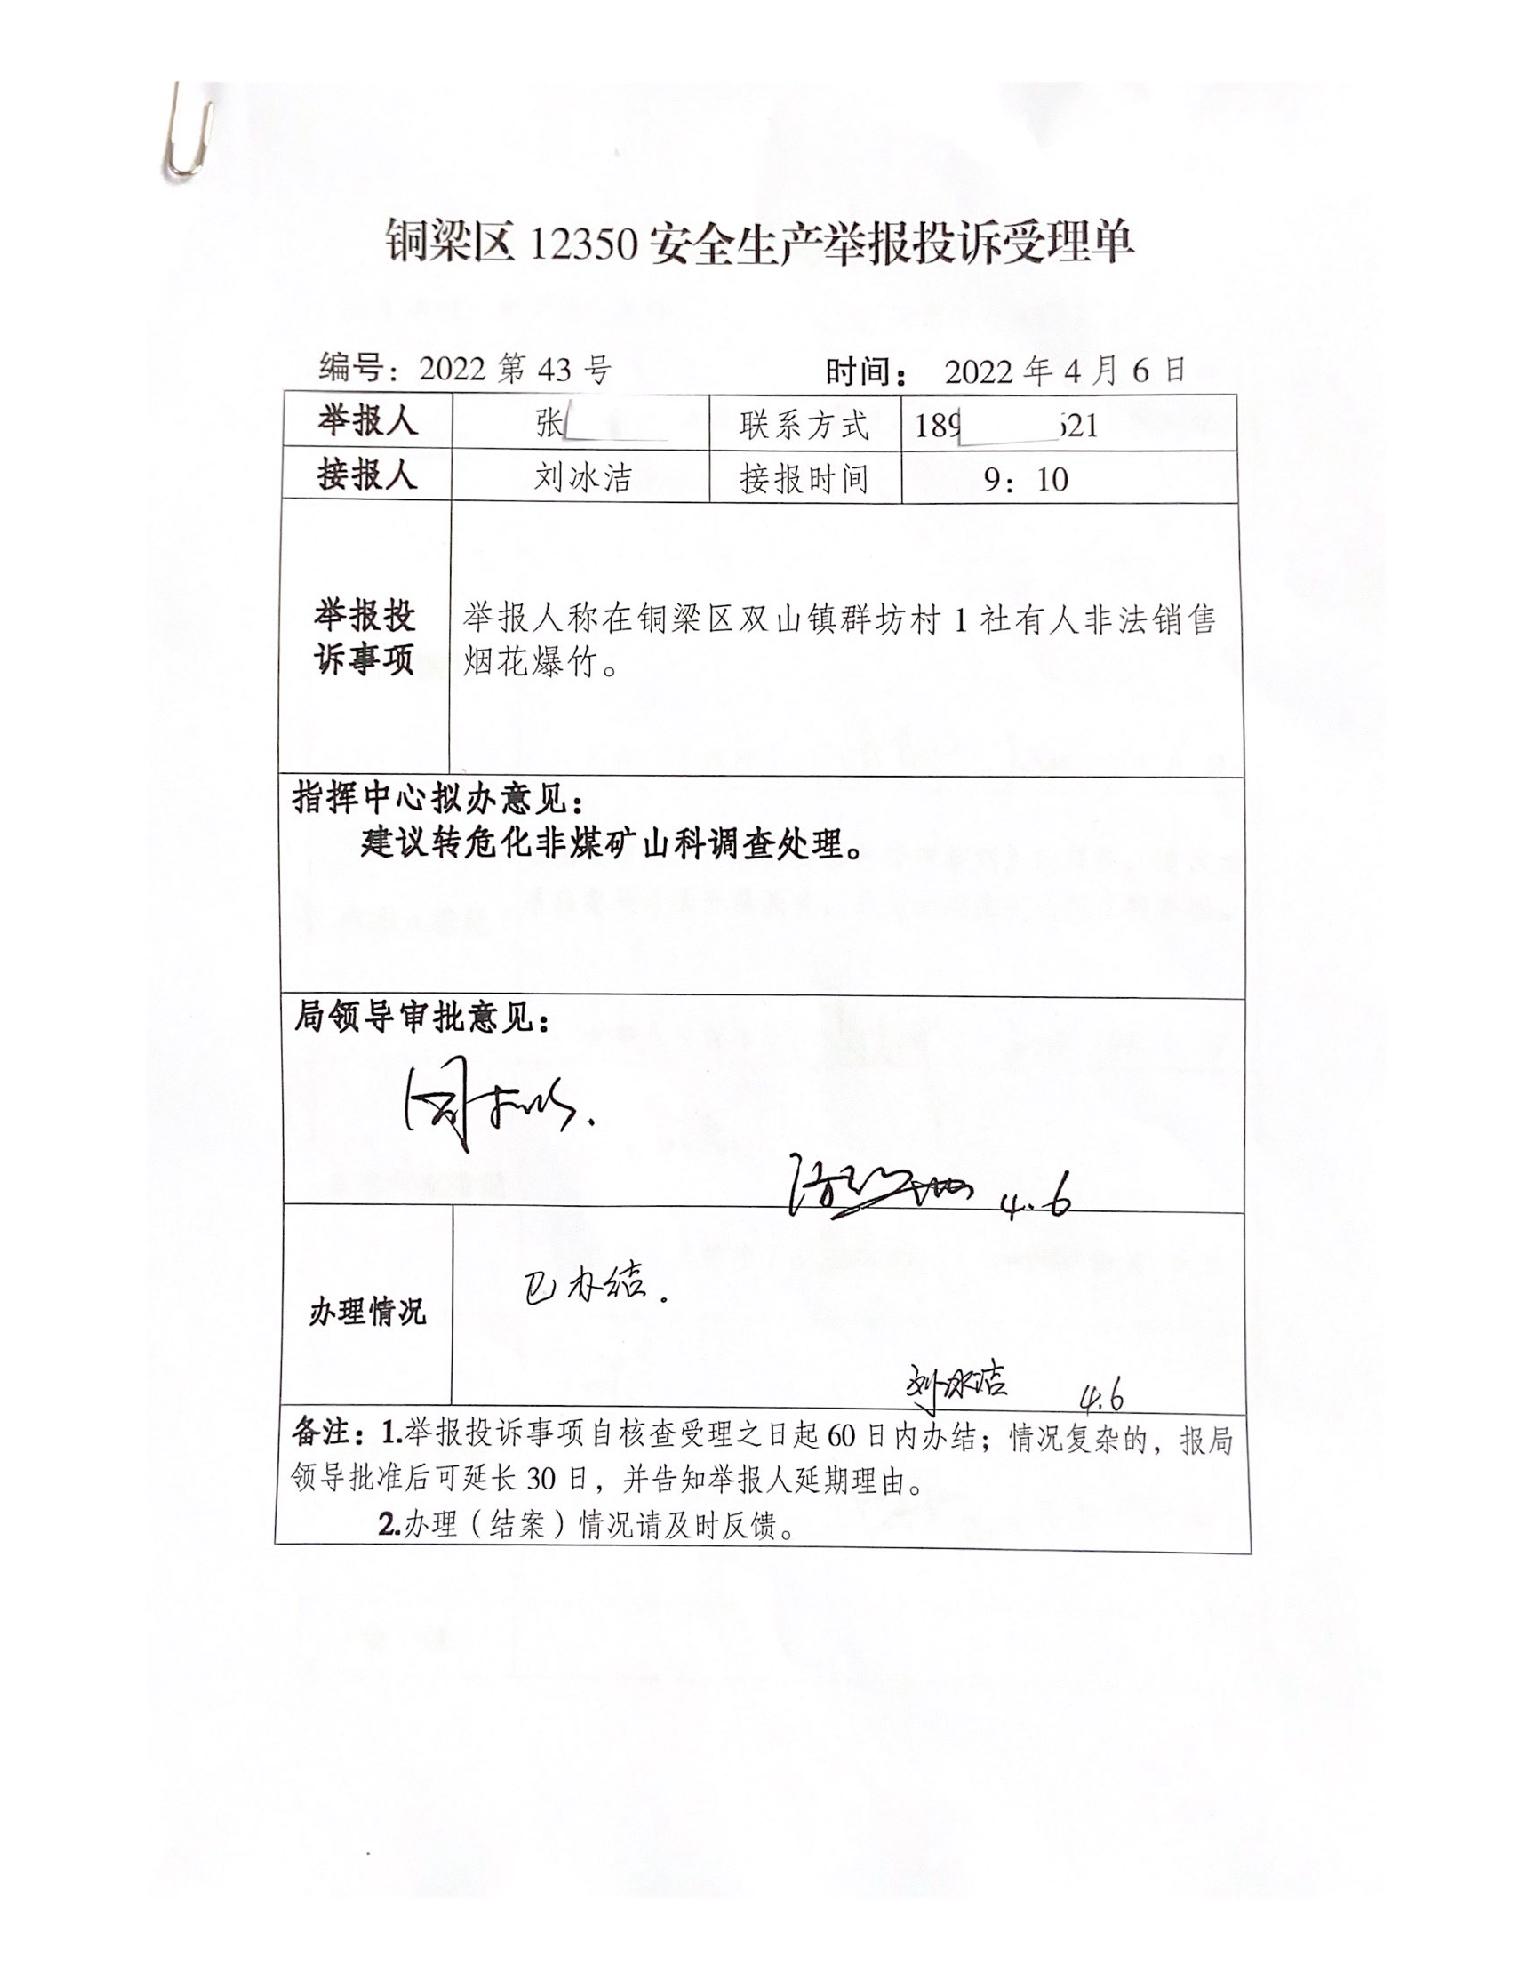 铜梁区 12350 安全生产举报投诉受理单
编号：2022 第 43 号 时间： 2022 年 4 月 6 日
举报人 张 联系方式 189 521
接报人 刘冰洁 接报时间 9：10
举报投诉事项
举报人称在铜梁区双山镇群坊村 1 社有人非法销售
烟花爆竹。
指挥中心拟办意见：
建议转危化非煤矿山科调查处理。
局领导审批意见：
同
4.6
办理情况
已办结.
刘冰洁 4.6
备注：1.举报投诉事项自核查受理之日起 60 日内办结；情况复杂的，报局
领导批准后可延长 30 日，并告知举报人延期理由。
2.办理（结案）情况请及时反馈。